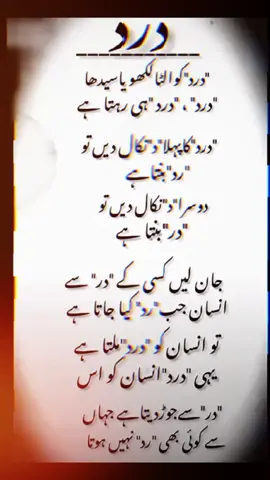 درد
"درد" کو الٹا لکھو یا سیدھا
"درد"، "درد" ہی رہتا ہے
"درد" کا پہلا "د" نکال دیں تو
"رد" بنتا ہے
دوسرا "د" نکال دیں تو
"در" بنتا ہے
جان لیں کسی کے "در" سے
انسان جب "رد" کیا جاتا ہے
تو انسان کو "درد" ملتا ہے
یہی "درد" انسان کو اس
"در" سے جوڑ دیتا ہے جہاں
سے کوئی بھی "رد" نہیں ہوتا